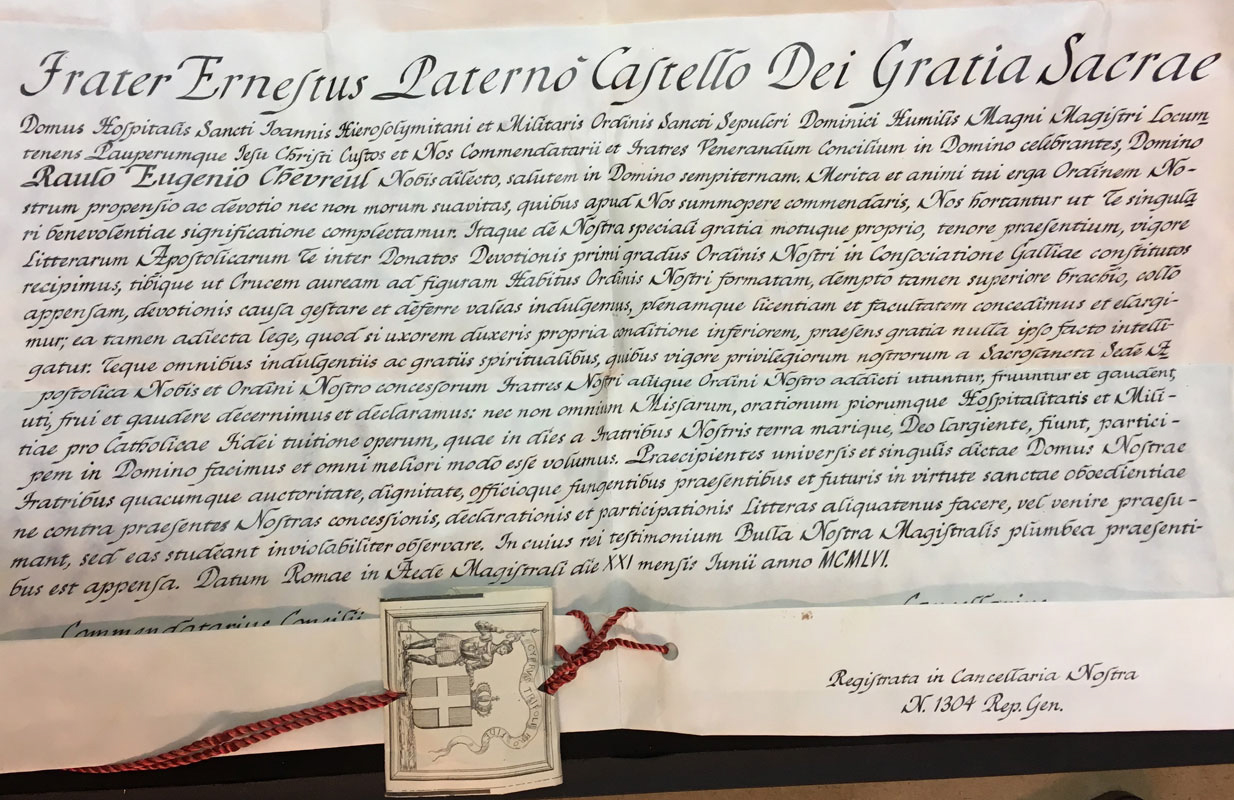 Frater Ernestus Paternò Castello Dei Gratia Sacrae
Domus Hospitalis Sancti Ioannis Hierosolymitani et Militaris Ordinis Sancti Sepulcri Dominici Humilis Magni Magistri Locum
tenens Pauperumque Jesu Christi Custos et Nos Commendatarii et Fratres Venerandum Concilium in Domino celebrantes, Domino
Raulo Eugenio Chevreul Nobis dilecto, salutem in Domino sempiternam. Merita et animi tui erga Ordinem No-
strum propensio ac devotio nec non morum suavitas, quibus apud Nos summopere commendaris, Nos hortantur ut Te singula
ri benevolentiae significatione complectamur. Itaque de Nostra speciali gratia motuque proprio, tenore praesentium, vigore
Litterarum Apostolicarum Te inter Donatos Devotionis primi gradus Ordinis Nostri in Consociatione Galliae constitutos
recipimus, tibique ut Crucem auream ad figuram Habitus Ordinis Nostri formatam, dempto tamen superiore brachio, collo
appensam, devotionis causa gestare et deferre valeas indulgemus, plenamque licentiam et facultatem concedimus et elargi-
mur; ea tamen adiecta lege, quod si uxorem duxeris propria conditione inferiorem, praesens gratia nulla ipso facto intelli-
gatur. Teque omnibus indulgentiis ac gratiis spiritualibus, quibus vigore privilegiorum nostrorum a Sacrosancta Sede A-
postolica Nobis et Ordini Nostro concessorum Fratres Nostri aliique Ordini Nostro addicti utuntur, fruuntur et gaudent,
uti, frui et gaudere decernimus et declaramus: nec non omnium Missarum, orationum piorumque Hospitalitatis et Mili-
tiae pro Catholicae Fidei tuitione operum, quae in dies a Fratribus Nostris terra marique, Deo largiente, fiunt, partici-
pem in Domino facimus et omni meliori modo esse volumus. Praecipientes universis et singulis dictae Domus Nostrae
Fratribus quacumque auctoritate, dignitate, officioque fungentibus praesentibus et futuris in virtute sanctae oboedientiae
ne contra praesentes Nostras concessionis, declarationis et participationis Litteras aliquatenus facere, vel venire praesu-
mant, sed eas studeant inviolabiliter observare. In cuius rei testimonium Bulla Nostra Magistralis plumbea praesenti-
bus est appensa. Datum Romae in Aede Magistrali die XXI mensis Iunii anno MCMLVI.
Commendatarius Concilii
Cancellarius
Registrata in Cancellaria Nostra
N. 1304 Rep. Gen.